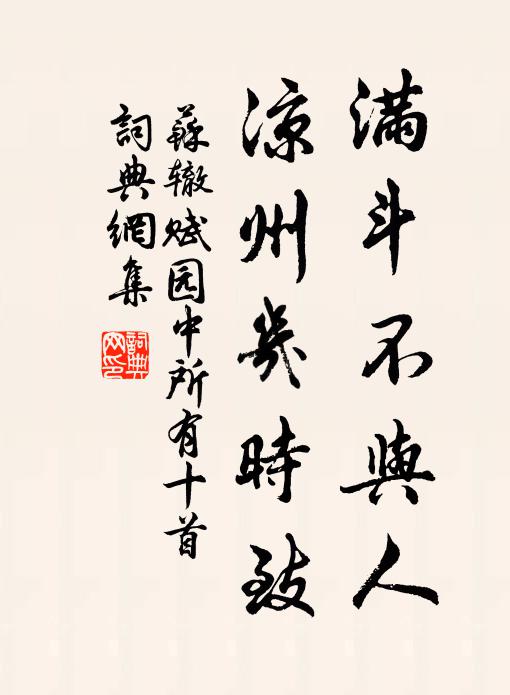 滿斗不與人
涼州幾時致
蘇辙赋园中所有十首
詞典網集
詞典网印